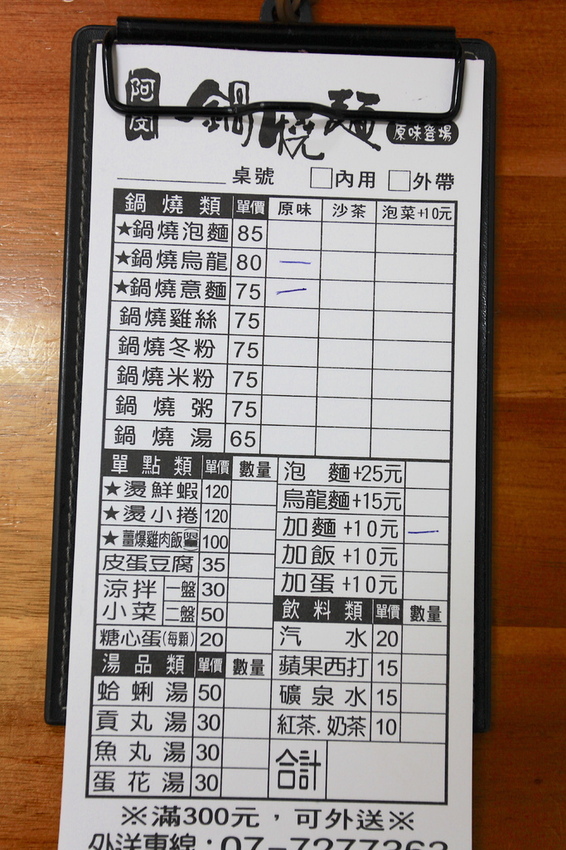 阿茂 一鍋燒麵 原味登場
桌號 □內用 □外帶
鍋燒類 單價 原味 沙茶 泡菜+10元
★鍋燒泡麵 85
★鍋燒烏龍 80 一
★鍋燒意麵 75 一
鍋燒雞絲 75
鍋燒冬粉 75
鍋燒米粉 75
鍋燒粥 75
鍋燒湯 65
單點類 單價 數量
★燙鮮蝦 120
★燙小捲 120
★薑爆雞肉飯 100
皮蛋豆腐 35
涼拌小菜 一盤 30
二盤 50
糖心蛋(每顆) 20
湯品類 單價 數量
蛤蜊湯 50
貢丸湯 30
魚丸湯 30
蛋花湯 30
泡麵+25元
烏龍麵+15元
加麵+10元 一
加飯+10元
加蛋+10元
飲料類 單價 數量
汽水 20
蘋果西打 15
礦泉水 15
紅茶.奶茶 10
合計
※滿300元，可外送※
外送專線：07-7277363